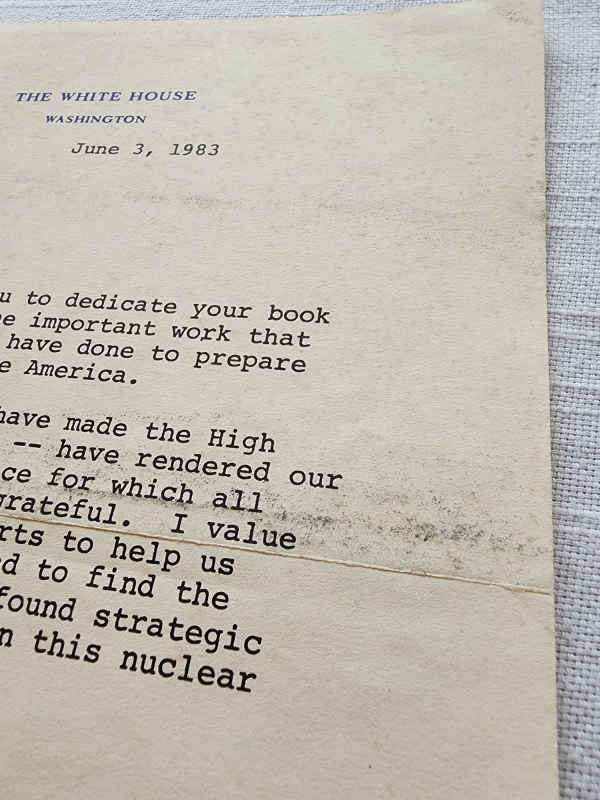 THE WHITE HOUSE
WASHINGTON
June 3, 1983
to dedicate your book
important work that
have done to prepare
America.
have made the High
-- have rendered our
for which all
grateful. I value
to help us
to find the
strategic
this nuclear